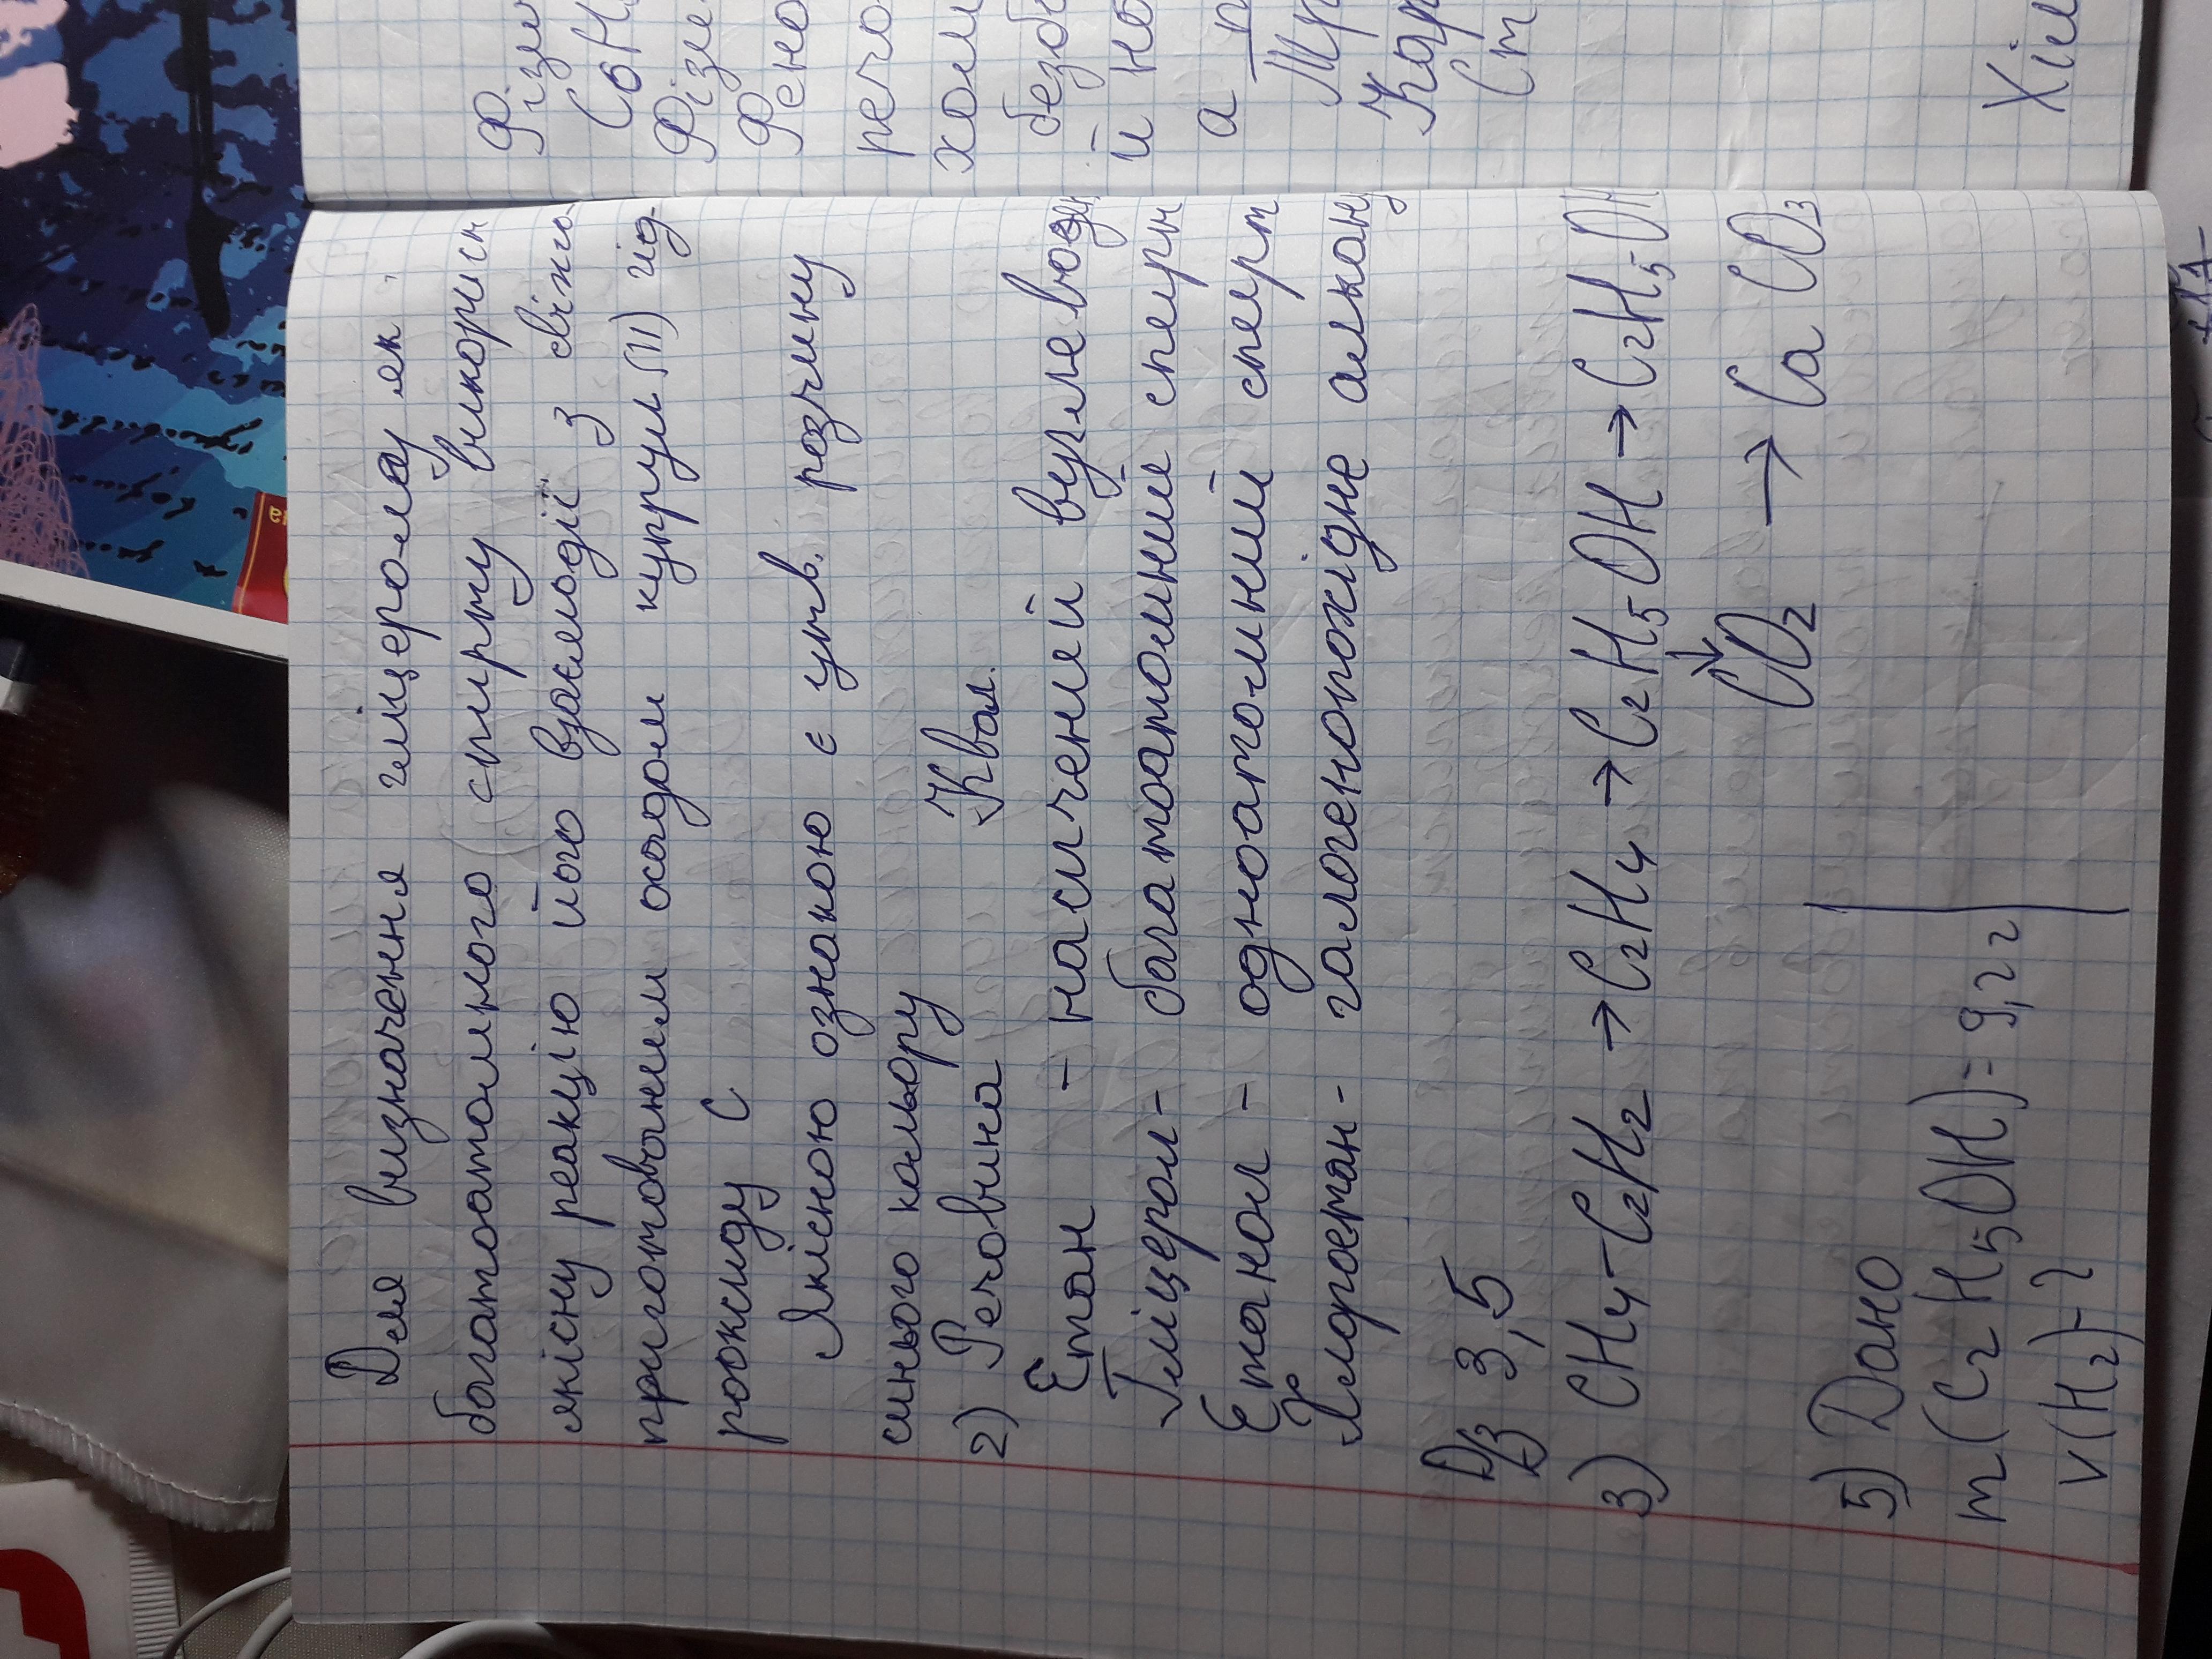 Для визначення гліцеролу як
богатоатомного спирту використ
якісну реакцію його взаємодії з свіжо
приготовленим осадом купрум (II) гід-
роксиду С
Якісною ознакою є утв. розчину
синього кольору
2) Речовина Квал.
Етан - насичений вуглеводн
Гліцерол - багатоатомний спирти
Етанол - одноатомний спирт
Хлороетан - галогенопохідне алкану
ДЗ 3,5
3) CH4-C2H2 → C2H4 → C2H5OH → C2H5OH
↓
CO2 → CaCO3
5) Дано
m(C2H5OH)=9,2г
V(H2)-?
Фізи
C6H
Фізи
Фено
речо
холи
безба
й но
а п
Тр
Кар
Ст
Хім